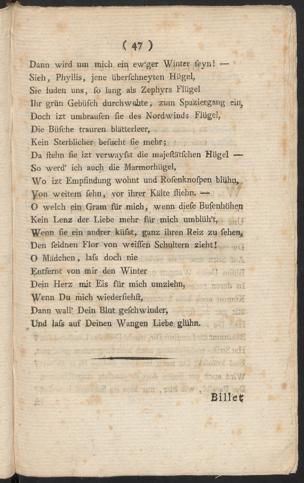 ( 47 )
Dann wird um mich ein ew'ger Winter seyn! —
Sieh, Phyllis, jene überschneyten Hügel,
Sie luden uns, so lang als Zephyrs Flügel
Ihr grün Gebüsch durchwehte, zum Spaziergang ein,
Doch izt umbrausen sie des Nordwinds Flügel,
Die Büsche trauren blätterleer,
Kein Sterblicher besucht sie mehr;
Da stehn sie izt verwayst die majestätschen Hügel —
So werd' ich auch die Marmorhügel,
Wo izt Empfindung wohnt und Rosenknospen blühn,
Von weitem sehn, vor ihrer Kälte fliehn. —
O welch ein Gram für mich, wenn diese Busenhöhen
Kein Lenz der Liebe mehr für mich umblüh't,
Wenn sie ein andrer küsst, ganz ihren Reiz zu sehen,
Den seidnen Flor von weissen Schultern zieht!
O Mädchen, lass doch nie
Entfernt von mir den Winter
Dein Herz mit Eis für mich umziehn,
Wenn Du mich wiedersiehst,
Dann wall' Dein Blut geschwinder,
Und lass auf Deinen Wangen Liebe glühn.
Billet